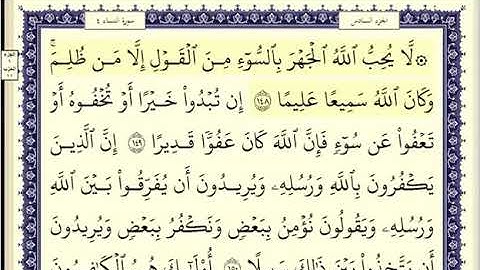 الجزء السادس
سورة النساء ٤
۞ لَّا يُحِبُّ ٱللَّهُ ٱلْجَهْرَ بِٱلسُّوٓءِ مِنَ ٱلْقَوْلِ إِلَّا مَن ظُلِمَ ۚ
وَكَانَ ٱللَّهُ سَمِيعًا عَلِيمًا ١٤٨ إِن تُبْدُوا۟ خَيْرًا أَوْ تُخْفُوهُ أَوْ
تَعْفُوا۟ عَن سُوٓءٍ فَإِنَّ ٱللَّهَ كَانَ عَفُوًّا قَدِيرًا ١٤٩ إِنَّ ٱلَّذِينَ
يَكْفُرُونَ بِٱللَّهِ وَرُسُلِهِۦ وَيُرِيدُونَ أَن يُفَرِّقُوا۟ بَيْنَ ٱللَّهِ
وَرُسُلِهِۦ وَيَقُولُونَ نُؤْمِنُ بِبَعْضٍ وَنَكْفُرُ بِبَعْضٍ وَيُرِيدُونَ
أَن يَتَّخِذُوا۟ بَيْنَ ذَٰلِكَ سَبِيلًا ١٥٠ أُو۟لَٰٓئِكَ هُمُ ٱلْكَٰفِرُونَ